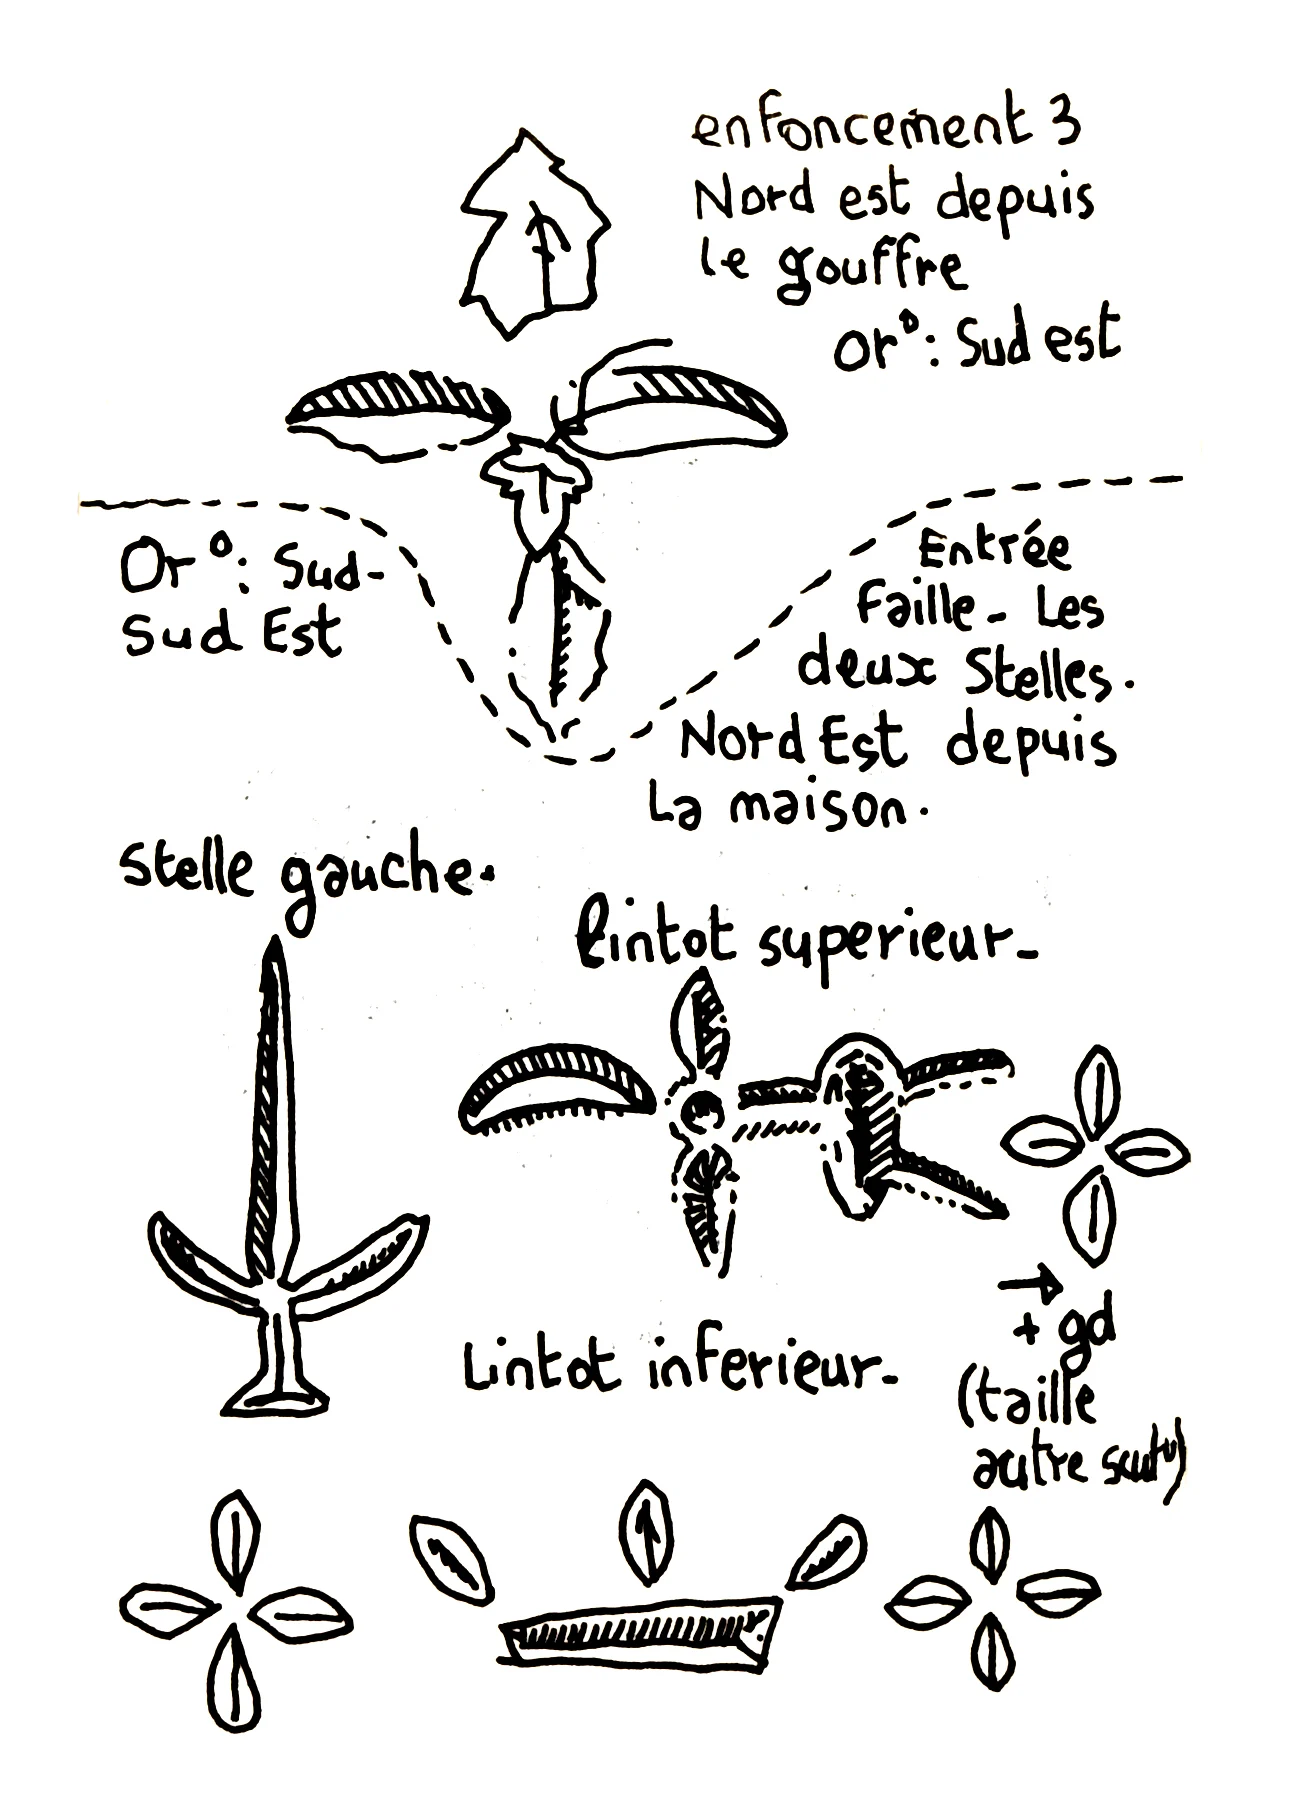 enfoncement 3
Nord est depuis
le gouffre
Or°: Sud est
Or°: Sud-
Sud Est
Entrée
Faille - Les
deux Stelles.
Nord Est depuis
La maison.
Stelle gauche.
Lintot superieur -
Lintot inferieur -
→
+ gd
(taille
autre